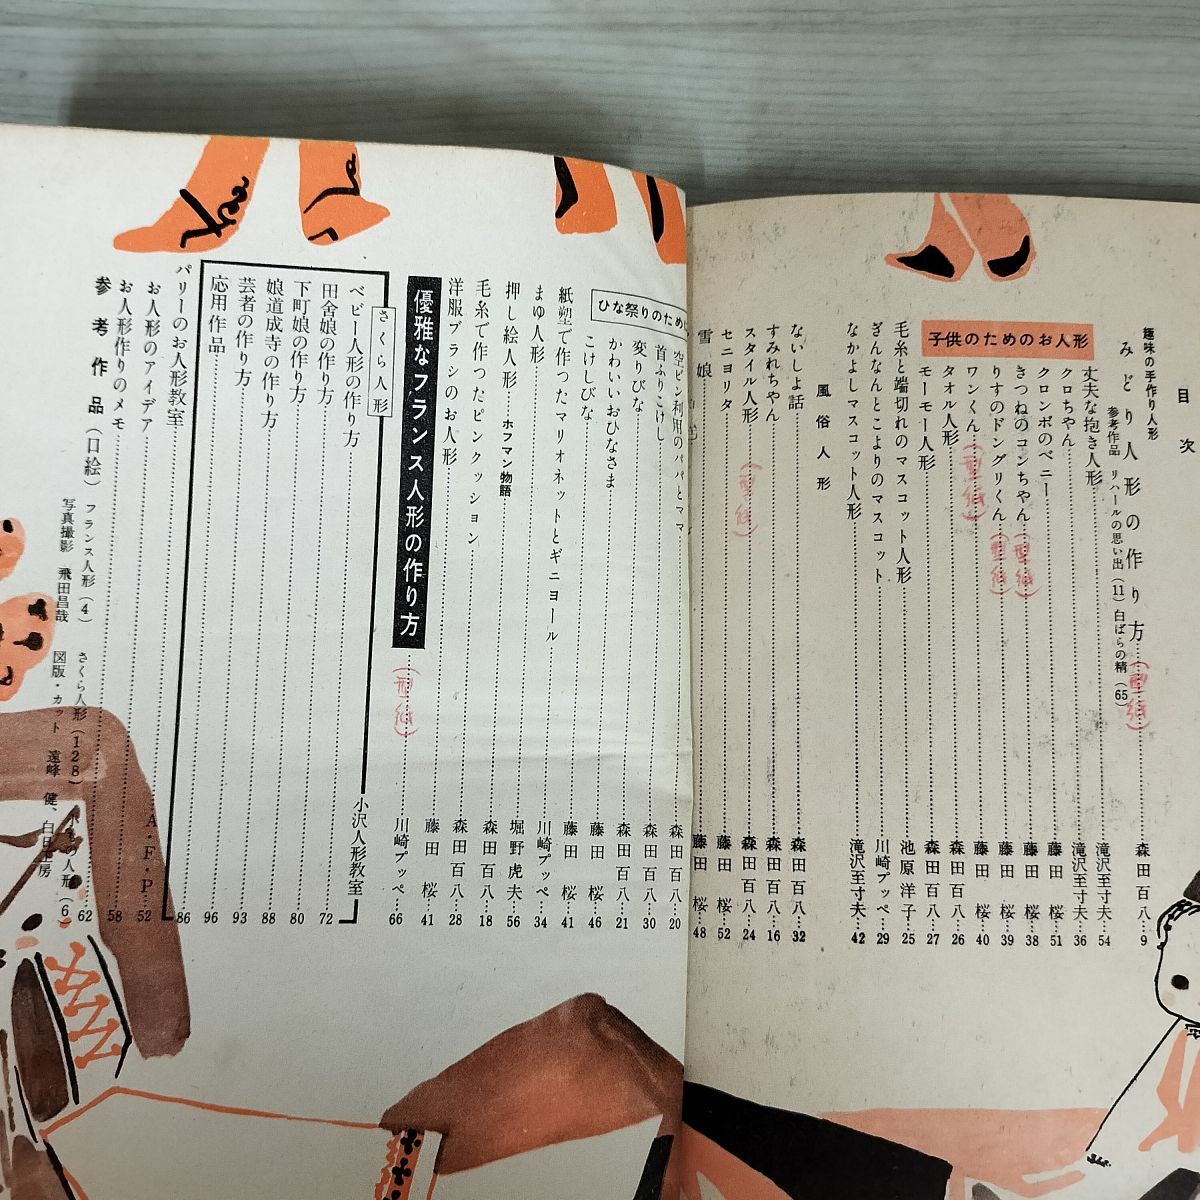 目次
趣味の手作り人形
みどり人形の作り方…(型紙)…森田百八…9
参考作品 リハールの思い出(11)白ばらの精(65)
子供のためのお人形
丈夫な抱き人形…滝沢至寸夫…54
クロちゃん…滝沢至寸夫…36
クロンボのベニー…藤田 桜…51
きつねのコンちゃん…(型紙)…藤田 桜…38
りすのドングリくん…(型紙)…藤田 桜…39
ワンくん…(型紙)…藤田 桜…40
タオル人形…森田百八…26
モーモー人形…森田百八…27
毛糸と端切れのマスコット人形…池原洋子…25
ぎんなんとこよりのマスコット…川崎プッペ…29
なかよしマスコット人形…滝沢至寸夫…42
風俗人形
ないしょ話…森田百八…32
すみれちゃん…森田百八…16
スタイル人形…(型紙)…森田百八…24
セニョリタ…藤田 桜…52
雪娘…藤田 桜…48
ひな祭りのため
空ビン利用のパパとママ…森田百八…20
首ふりこけし…森田百八…30
変りびな…森田百八…21
かわいいおひなさま…藤田 桜…46
こけしびな…藤田 桜…41
紙塑で作ったマリオネットとギニョール
まゆ人形…川崎プッペ…34
押し絵人形 ホフマン物語…堀野虎夫…56
毛糸で作ったピンクッション…森田百八…18
洋服ブラシのお人形…森田百八…28
藤田 桜…41
優雅なフランス人形の作り方…(型紙)…川崎プッペ…66
さくら人形…小沢人形教室
ベビー人形の作り方…72
田舎娘の作り方…80
下町娘の作り方…88
娘道成寺の作り方…93
芸者の作り方…96
応用作品…86
パリーのお人形教室…A・F・P…52
お人形のアイデア…58
お人形作りのメモ…62
参考作品(口絵) フランス人形(4) さくら人形(128)
写真撮影 飛田昌哉 図版・カット 遠峰 健、白日工房